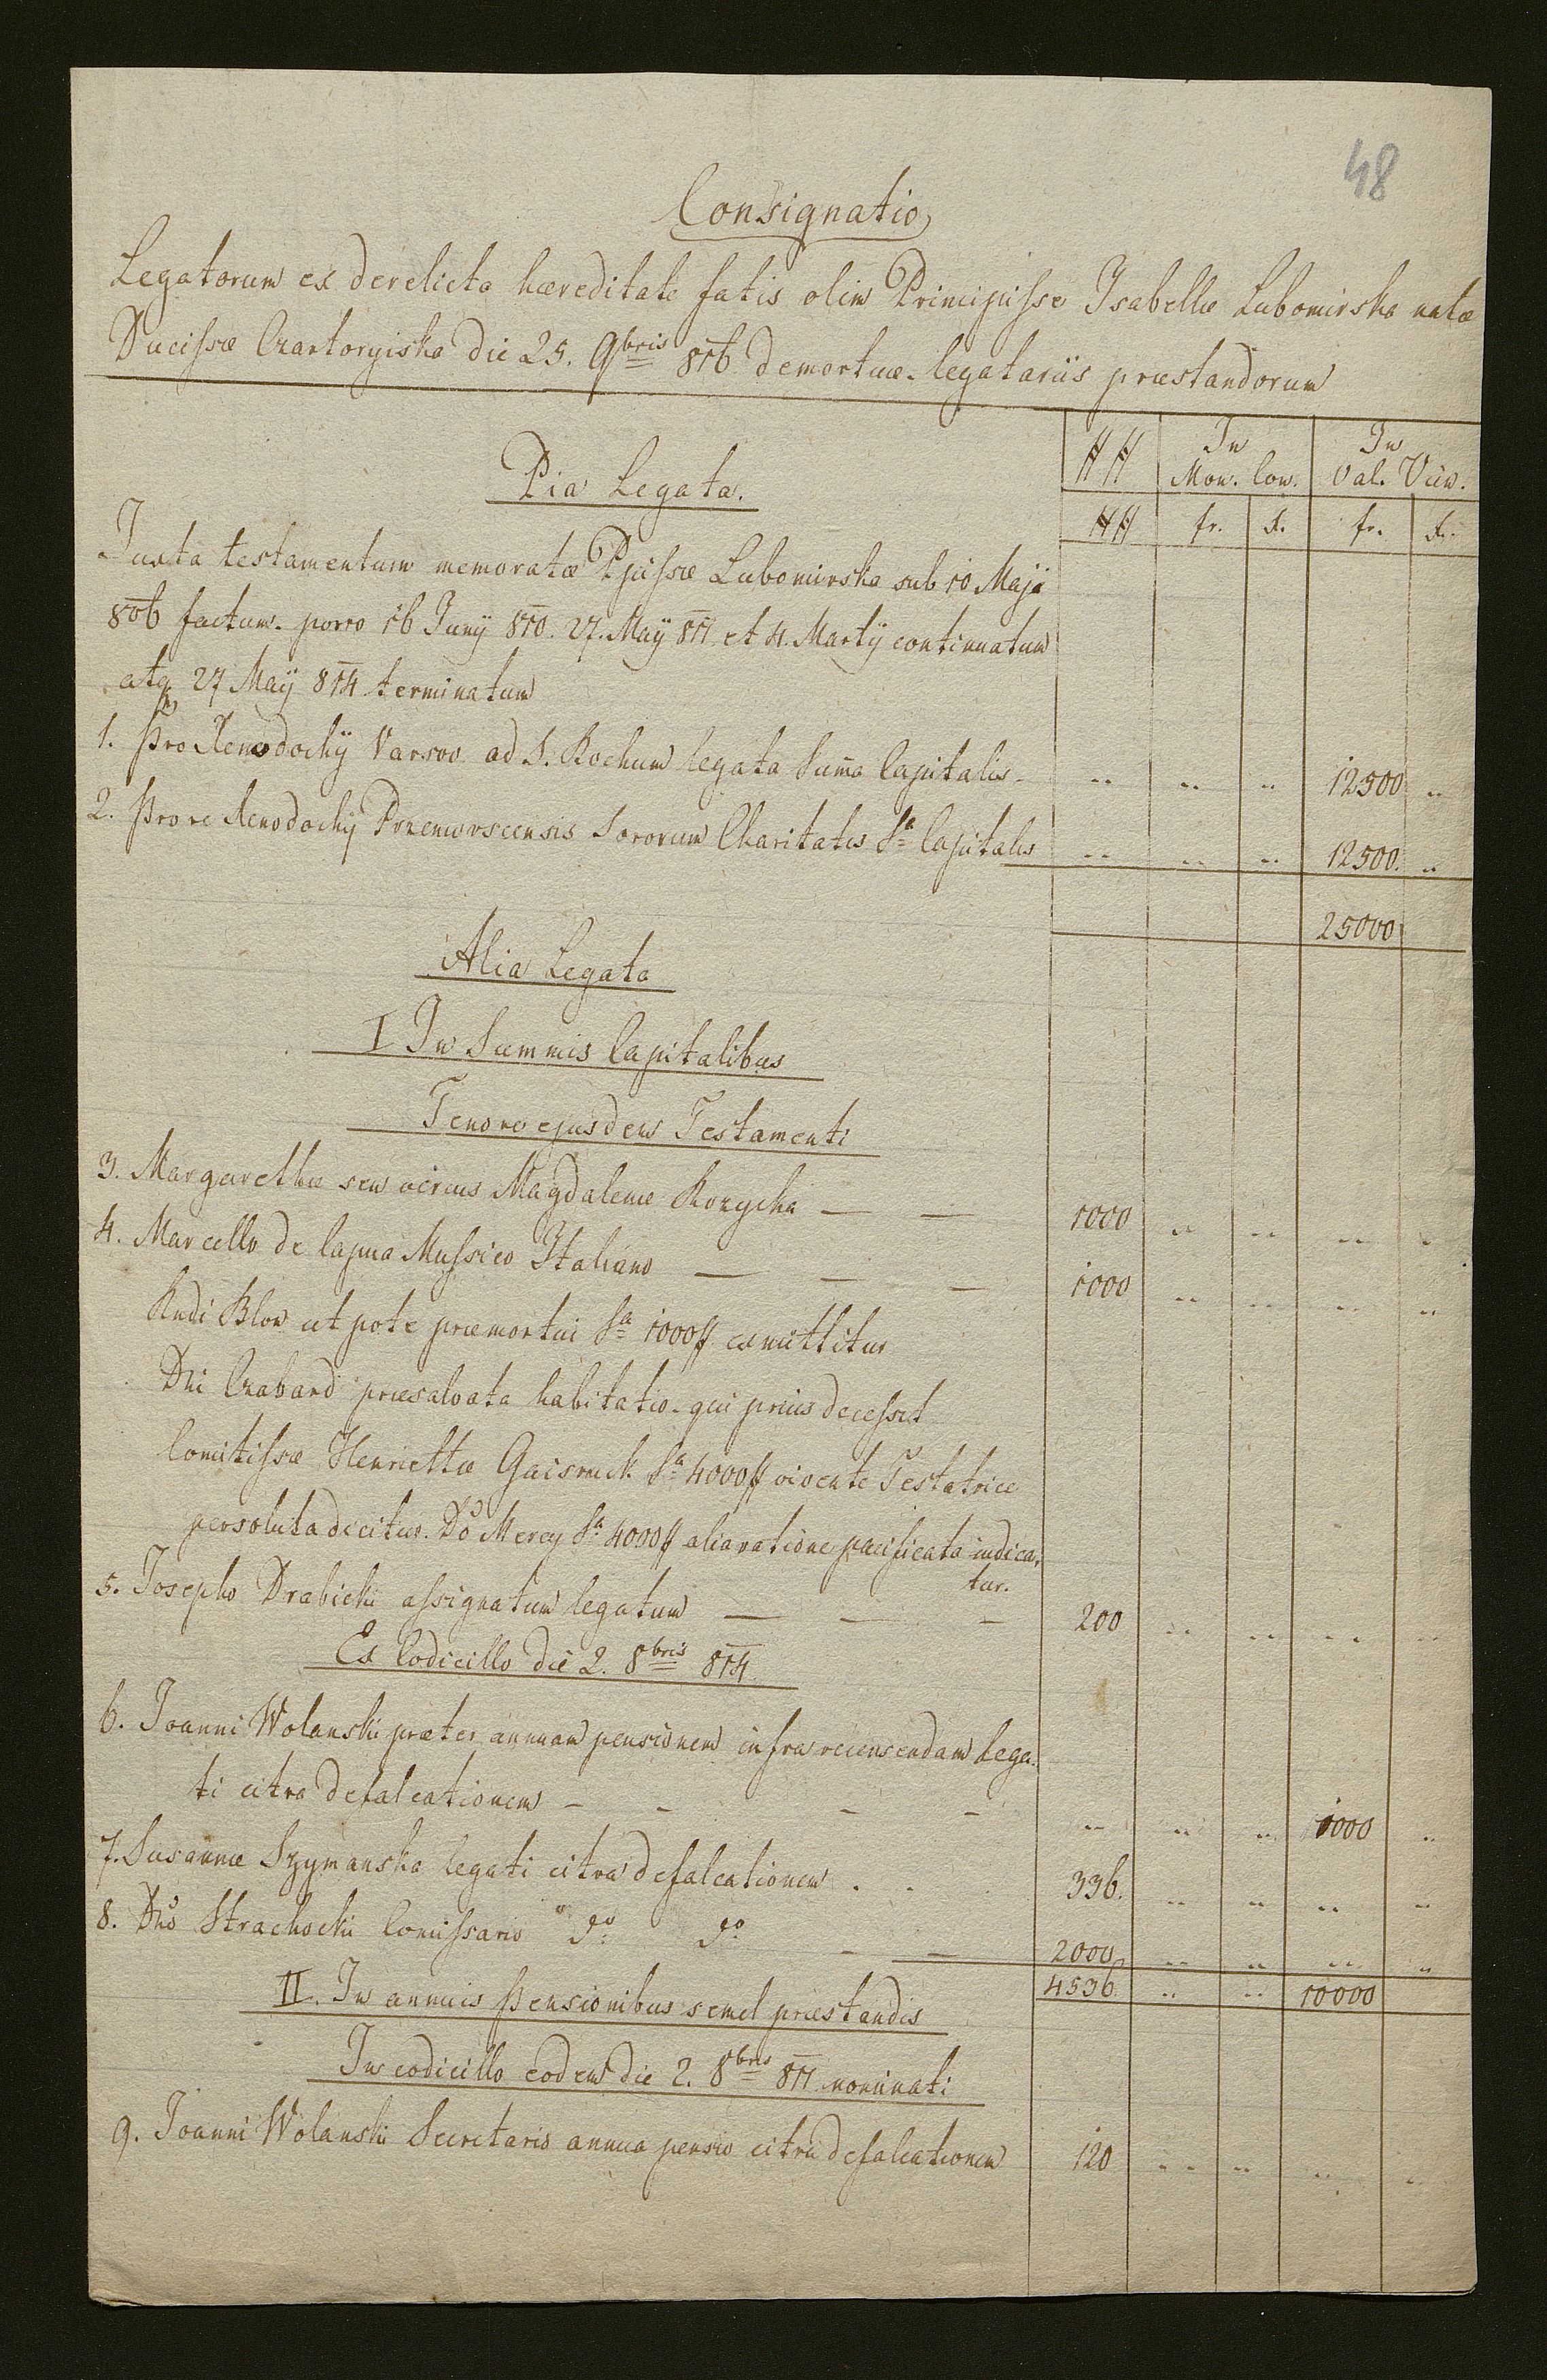 48
Consignatio
Legatorum ex derelicta hæreditate fatis olim Principisse Isabellæ Lubomirska natæ
Ducissæ Czartoryiska die 25. 9bris 816 demortuæ legatariis præstandorum
## In Mon. Con. In Val. Vien.
## fr. x. fr. x.
Pia Legata.
Juxta testamentum memoratæ Ppissæ Lubomirska sub 10 Maji
806 factum. porro 16 Junÿ 810. 27. Maÿ 811 et 4. Martÿ continuatum
atq 27 Maÿ 814 terminatum
1. Pro Xenodochÿ Varsov. ad S. Rochum legata Suma Capitalis - " " " 12500 "
2. Pro re Xenodochÿ Przeworscensis Sororum Charitatis Sa Capitalis " " " 12500. "
25000
Alia Legata
I In Summis Capitalibus
Tenore ejusdem Testamenti
3. Margarethæ seu verius Magdalenæ Kozycka — — 1000 " " " "
4. Marcello de Capua Mussico Italiano — — — 1000 " " " "
Rudi Blon ut pote præmortui Sa 1000 # omittitur
Dni Czaband præsalvata habitatio - qui prius decessit
Comitissæ Henriettæ Gaisruck Sa 4000 # vivente Testatrice
persoluta dicitur. Do Mercy Sa 4000 # alia ratione pacificata indica,
tur.
5. Josepho Drabicki assignatum legatum — — — 200 " " " "
Ex Codicillo die 2. 8bris 814
6. Joanni Wolanski præter annuam pensionem infra recensendam Lega-
ti citra defalcationem - - - - " " " 10000 "
7. Susannæ Szymanska legati citra defalcationem . . 336. " " " "
8. Dno Strachocki Comissario do do - — 2000 " " " "
4536. " " 10000
II. In annuis Pensionibus semel præstandis
In codicillo eodem die 2. 8bris 811 nominati
9. Joanni Wolanski Secretario annua pensio citra defalcationem 120 " " " "